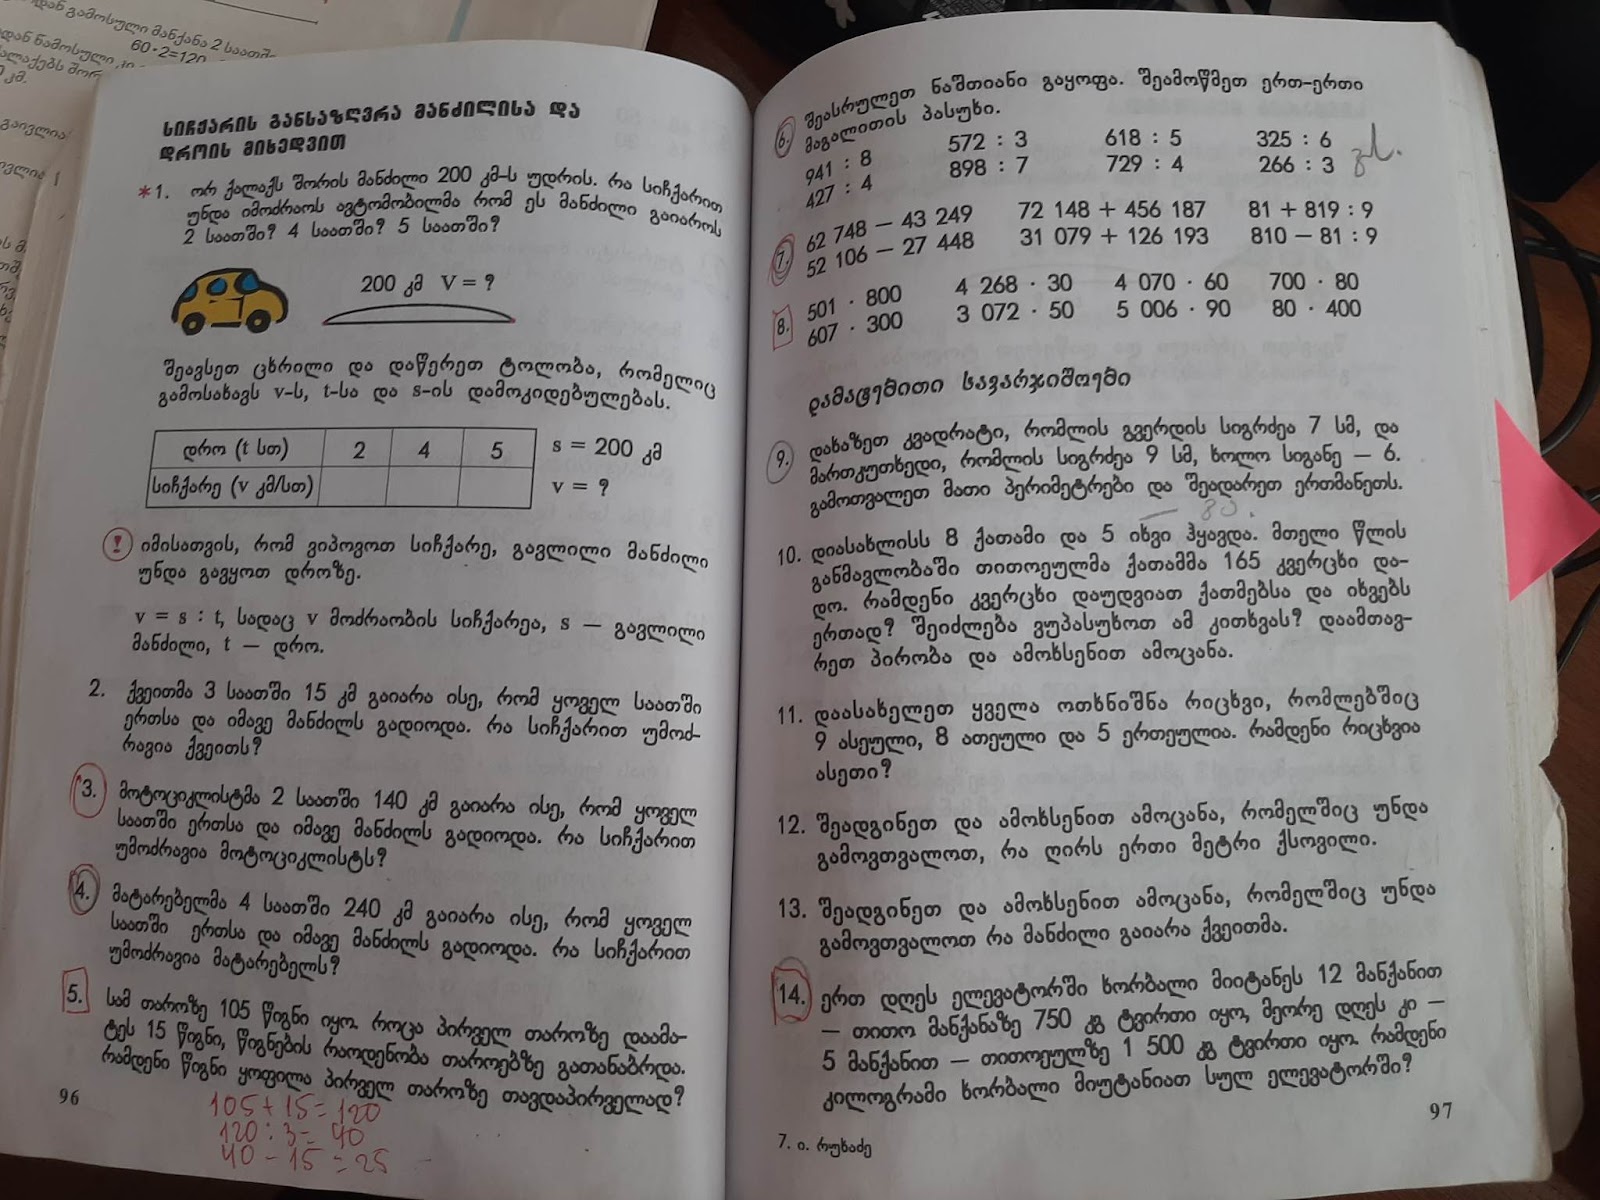 დან გამოსული მანქანა 2 საათში
60·2=120
სიჩქარის განსაზღვრა მანძილისა და
დროის მიხედვით
*1. ორ ქალაქს შორის მანძილი 200 კმ-ს უდრის. რა სიჩქარით
უნდა იმოძრაოს ავტომობილმა რომ ეს მანძილი გაიაროს
2 საათში? 4 საათში? 5 საათში?
200 კმ V = ?
შეავსეთ ცხრილი და დაწერეთ ტოლობა, რომელიც
გამოსახავს v-ს, t-სა და s-ის დამოკიდებულებას.
დრო (t სთ) 2 4 5 s = 200 კმ
სიჩქარე (v კმ/სთ) v = ?
! იმისათვის, რომ ვიპოვოთ სიჩქარე, გავლილი მანძილი
უნდა გავყოთ დროზე.
v = s : t, სადაც v მოძრაობის სიჩქარეა, s — გავლილი
მანძილი, t — დრო.
2. ქვეითმა 3 საათში 15 კმ გაიარა ისე, რომ ყოველ საათში
ერთსა და იმავე მანძილს გადიოდა. რა სიჩქარით უმოძ-
რავია ქვეითს?
3. მოტოციკლისტმა 2 საათში 140 კმ გაიარა ისე, რომ ყოველ
საათში ერთსა და იმავე მანძილს გადიოდა. რა სიჩქარით
უმოძრავია მოტოციკლისტს?
4. მატარებელმა 4 საათში 240 კმ გაიარა ისე, რომ ყოველ
საათში ერთსა და იმავე მანძილს გადიოდა. რა სიჩქარით
უმოძრავია მატარებელს?
5. სამ თაროზე 105 წიგნი იყო. როცა პირველ თაროზე დაამა-
ტეს 15 წიგნი, წიგნების რაოდენობა თაროებზე გათანაბრდა.
რამდენი წიგნი ყოფილა პირველ თაროზე თავდაპირველად?
96
105+15=120
120:3=40
40-15=25
6. შეასრულეთ ნაშთიანი გაყოფა. შეამოწმეთ ერთ-ერთი
მაგალითის პასუხი.
941 : 8 572 : 3 618 : 5 325 : 6
427 : 4 898 : 7 729 : 4 266 : 3
7. 62 748 – 43 249 72 148 + 456 187 81 + 819 : 9
52 106 – 27 448 31 079 + 126 193 810 – 81 : 9
8. 501 · 800 4 268 · 30 4 070 · 60 700 · 80
607 · 300 3 072 · 50 5 006 · 90 80 · 400
დამატებითი სავარჯიშოები
9. დახაზეთ კვადრატი, რომლის გვერდის სიგრძეა 7 სმ, და
მართკუთხედი, რომლის სიგრძეა 9 სმ, ხოლო სიგანე — 6.
გამოთვალეთ მათი პერიმეტრები და შეადარეთ ერთმანეთს.
10. დიასახლისს 8 ქათამი და 5 იხვი ჰყავდა. მთელი წლის
განმავლობაში თითოეულმა ქათამმა 165 კვერცხი და-
დო. რამდენი კვერცხი დაუდვიათ ქათმებსა და იხვებს
ერთად? შეიძლება ვუპასუხოთ ამ კითხვას? დაამთავ-
რეთ პირობა და ამოხსენით ამოცანა.
11. დაასახელეთ ყველა ოთხნიშნა რიცხვი, რომლებშიც
9 ასეული, 8 ათეული და 5 ერთეულია. რამდენი რიცხვია
ასეთი?
12. შეადგინეთ და ამოხსენით ამოცანა, რომელშიც უნდა
გამოვთვალოთ, რა ღირს ერთი მეტრი ქსოვილი.
13. შეადგინეთ და ამოხსენით ამოცანა, რომელშიც უნდა
გამოვთვალოთ რა მანძილი გაიარა ქვეითმა.
14. ერთ დღეს ელევატორში ხორბალი მიიტანეს 12 მანქანით
— თითო მანქანაზე 750 კგ ტვირთი იყო, მეორე დღეს კი —
5 მანქანით — თითოეულზე 1 500 კგ ტვირთი იყო. რამდენი
კილოგრამი ხორბალი მიუტანიათ სულ ელევატორში?
97
7. ი. რუხაძე